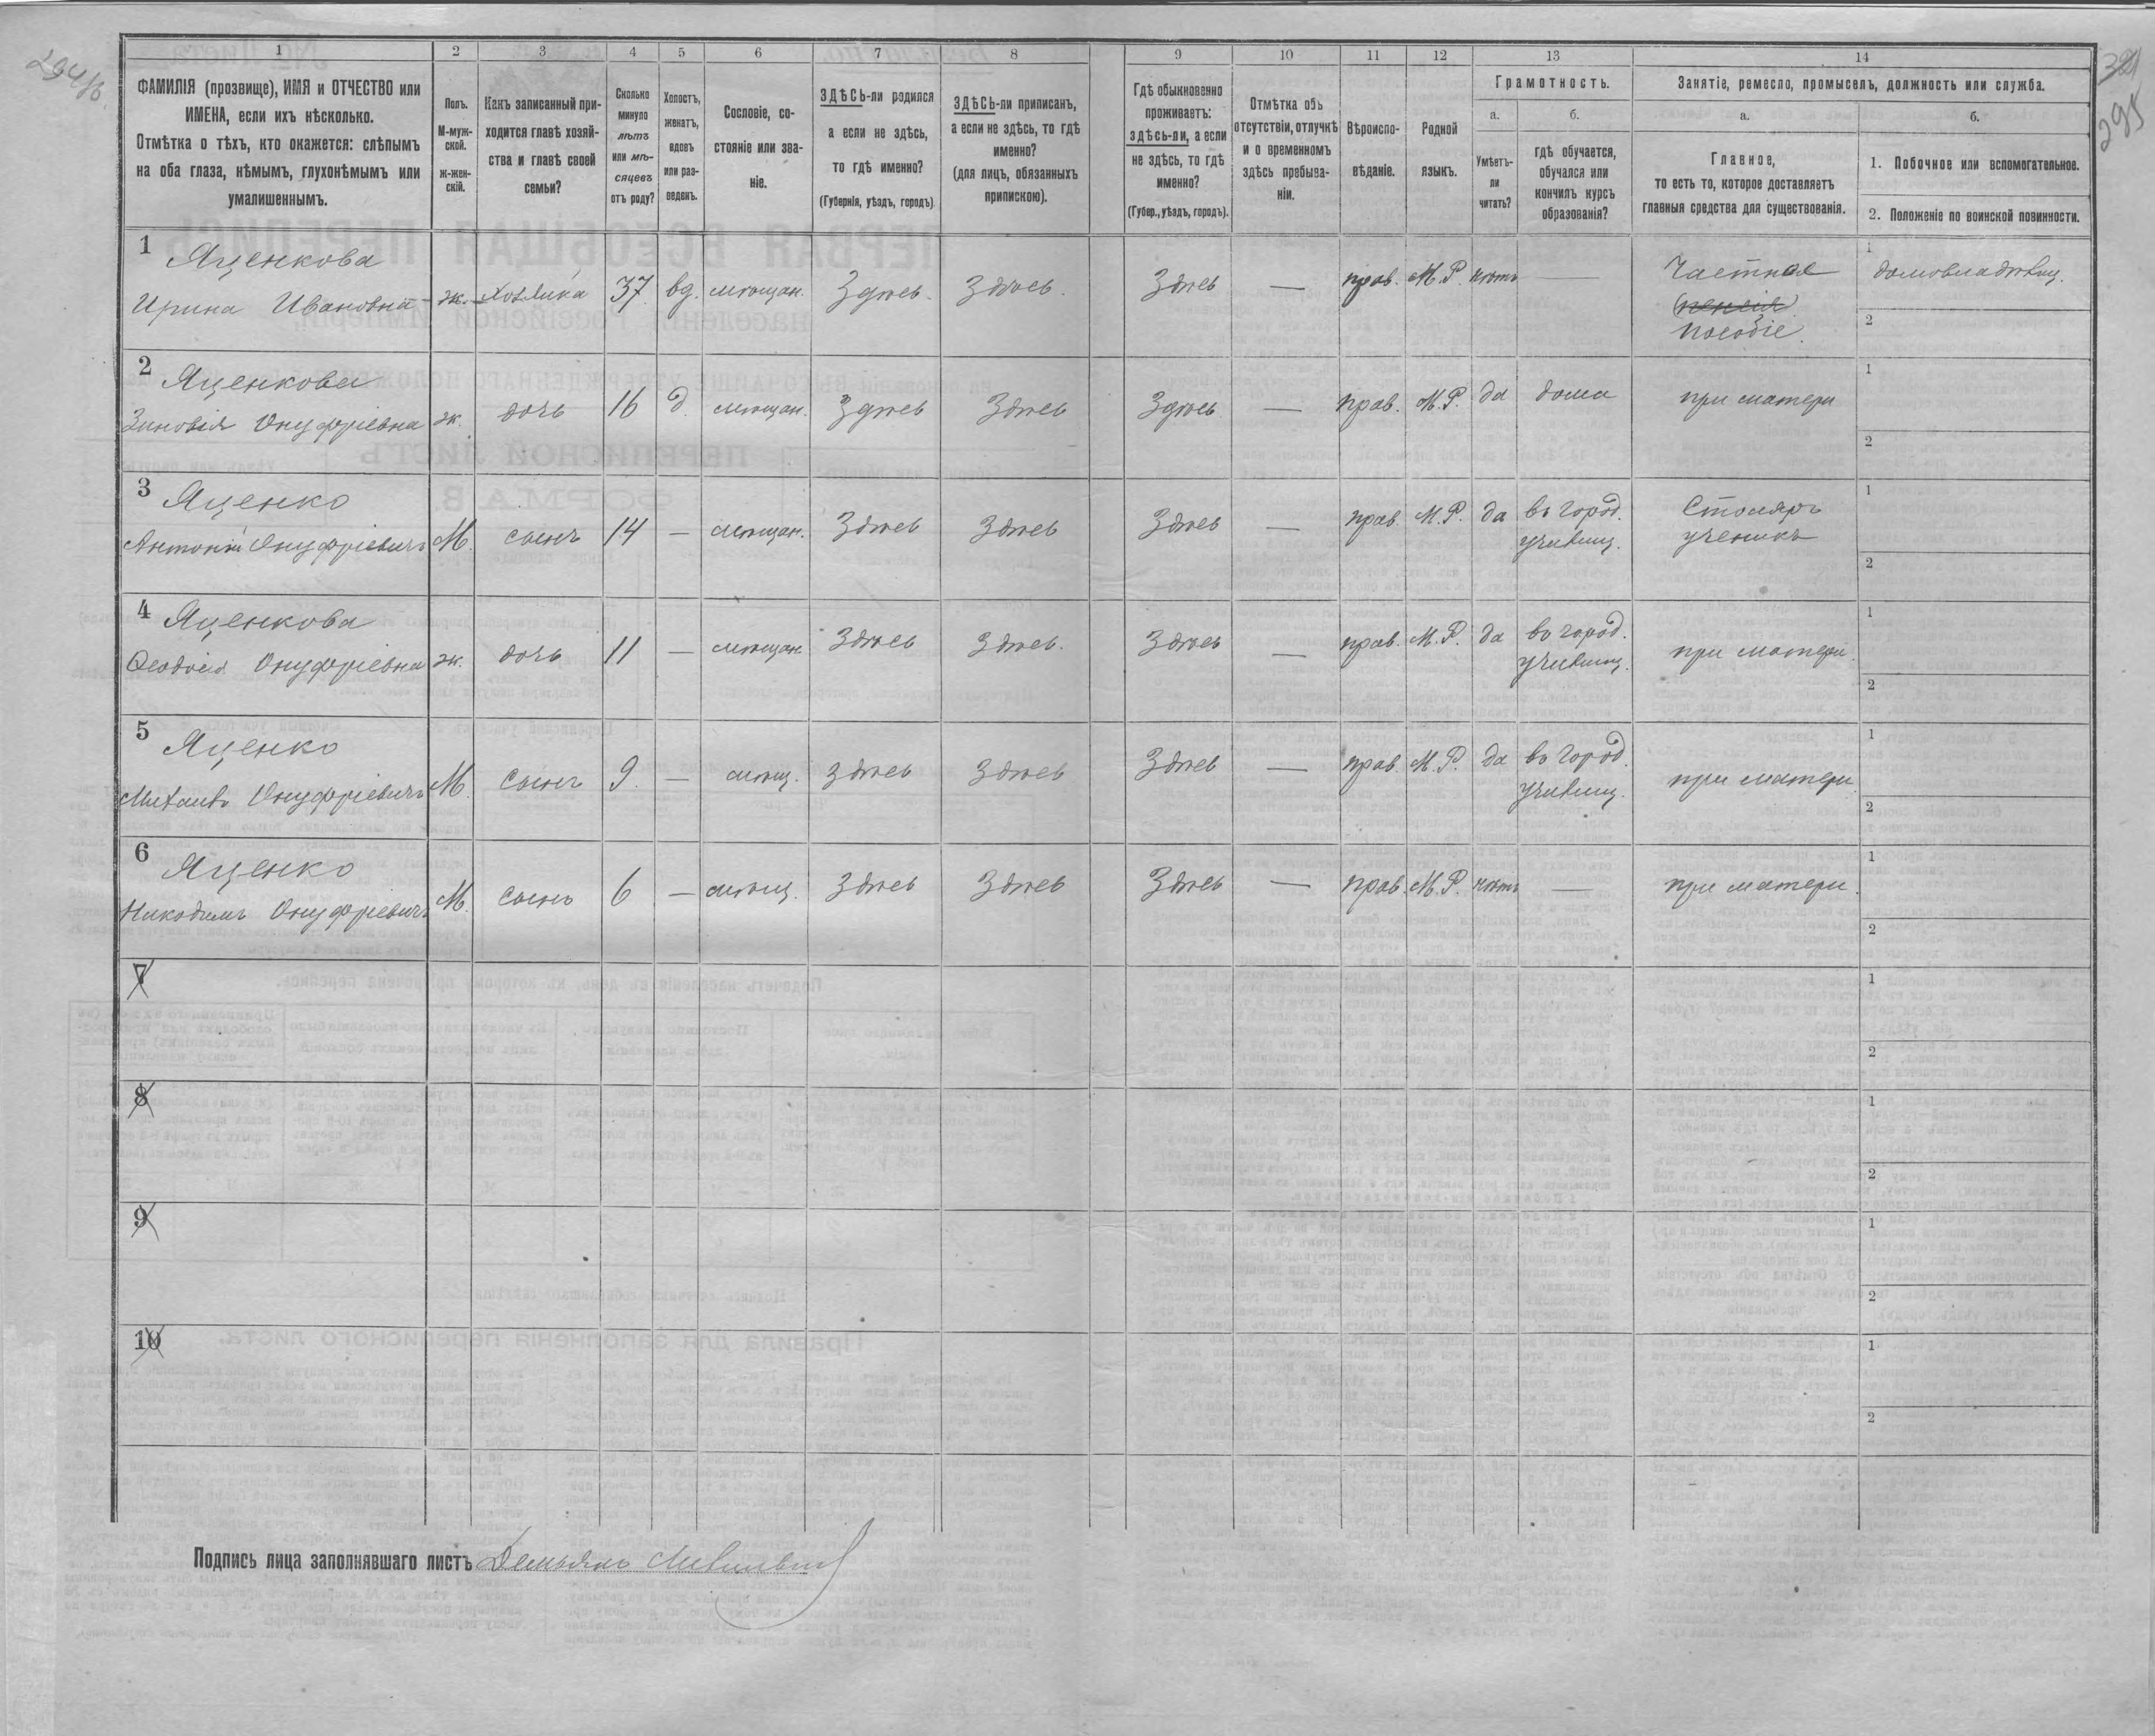 294 об.
295
1
2
3
4
5
6
7
8
9
10
11
12
13
14
ФАМИЛІЯ (прозвище), ИМЯ и ОТЧЕСТВО или
ИМЕНА, если ихъ нѣсколько.
Отмѣтка о тѣхъ, кто окажется: слѣпымъ
на оба глаза, нѣмымъ, глухонѣмымъ или
умалишеннымъ.
Полъ.
М-муж-
ской.
ж-жен-
скій.
Какъ записанный при-
ходится главѣ хозяй-
ства и главѣ своей
семьи?
Сколько
минуло
лѣтъ
или мѣ-
сяцевъ
отъ роду?
Холостъ,
женатъ,
вдовъ
или раз-
веденъ.
Сословіе, со-
стояніе или зва-
ніе.
ЗДѢСЬ-ли родился
а если не здѣсь,
то гдѣ именно?
(Губернія, уѣздъ, городъ)
ЗДѢСЬ-ли приписанъ,
а если не здѣсь, то гдѣ
именно?
(для лицъ, обязанныхъ
припискою).
Гдѣ обыкновенно
проживаетъ:
здѣсь-ли, а если
не здѣсь, то гдѣ
именно?
(Губер., уѣздъ, городъ).
Отмѣтка объ
отсутствіи, отлучкѣ
и о временномъ
здѣсь пребыва-
ніи.
Вѣроиспо-
вѣданіе.
Родной
языкъ.
Грамотность.
а.
Умѣетъ-
ли
читать?
б.
гдѣ обучается,
обучался или
кончилъ курсъ
образованія?
Занятіе, ремесло, промыселъ, должность или служба.
а.
Главное,
то есть то, которое доставляетъ
главныя средства для существованія.
б.
1. Побочное или вспомогательное.
2. Положеніе по воинской повинности.
1 Яценкова
Ирина Ивановна ж. хозяйка 37 вд. мѣщан. Здѣсь. Здѣсь. Здѣсь — прав. М.Р. нѣтъ —
Частное
пенсія
пособіе.
1 домовладѣлиц.
2
2 Яценкова
Зиновія Онуфріевна ж. дочь 16 д. мѣщан. Здѣсь Здѣсь Здѣсь — прав. М.Р. да дома при матери
1
2
3 Яценко
Антоній Онуфріевичъ М. сынъ 14 — мѣщан. Здѣсь Здѣсь Здѣсь — прав. М.Р. да въ город.
училищ.
Столяръ
ученикъ
1
2
4 Яценкова
Ѳеодосія Онуфріевна ж. дочь 11 — мѣщан. Здѣсь Здѣсь. Здѣсь — прав. М.Р. да въ город.
училищ.
при матери.
1
2
5 Яценко
Михаилъ Онуфріевичъ М. сынъ 9. — мѣщ. Здѣсь Здѣсь Здѣсь — прав. М.Р. да въ город.
училищ.
при матери.
1
2
6 Яценко
Никодимъ Онуфріевичъ М. сынъ 6 — мѣщ. Здѣсь Здѣсь Здѣсь — прав. М.Р. нѣтъ — при матери.
1
2
7
1
2
8
1
2
9
1
2
10
1
2
Подпись лица заполнявшаго листъ Демьянъ